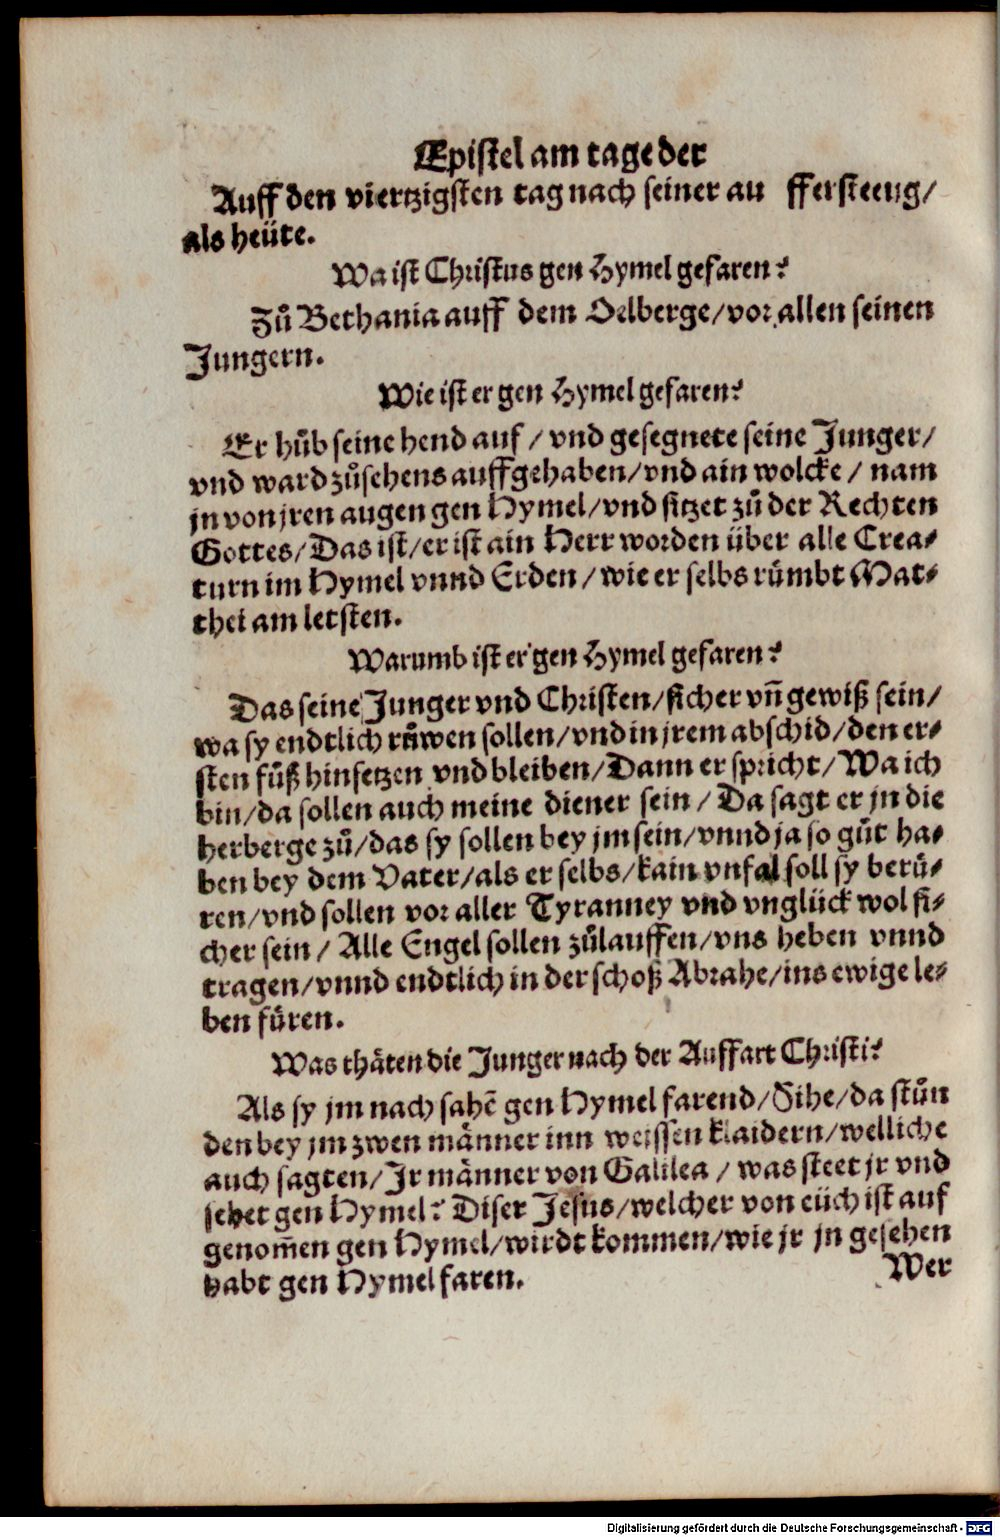 Epistel am tage der
Auff den viertzigsten tag nach seiner au ffersteeng/
als heüte.
Wa ist Christus gen Hymel gefaren?
Zů Bethania auff dem Oelberge/vor allen seinen
Jungern.
Wie ist er gen Hymel gefaren?
Er hůb seine hend auf / vnd gesegnete seine Junger/
vnd ward zůsehens auffgehaben/vnd ain wolcke / nam
jn von jren augen gen Hymel/vnd sitzet zů der Rechten
Gottes/Das ist/er ist ain Herr worden über alle Crea⸗
turn im Hymel vnnd Erden/wie er selbs růmbt Mat⸗
thei am letsten.
Warumb ist er gen Hymel gefaren?
Das seine Junger vnd Christen/sicher vñ gewiß sein/
wa sy endtlich růwen sollen/vnd in jrem abschid/den er⸗
sten fůß hinsetzen vnd bleiben/Dann er spricht/Wa ich
bin/da sollen auch meine diener sein / Da sagt er jn die
herberge zů/das sy sollen bey jm sein/vnnd ja so gůt ha⸗
ben bey dem Vater/als er selbs/kain vnfal soll sy berů⸗
ren/vnd sollen vor aller Tyranney vnd vnglück wol si⸗
cher sein / Alle Engel sollen zůlauffen/vns heben vnnd
tragen/vnnd endtlich in der schoß Abrahe/ins ewige le⸗
ben fůren.
Was thäten die Junger nach der Auffart Christi?
Als sy jm nach sahẽ gen Hymel farend/Sihe/da stůn
den bey jm zwen männer inn weissen klaidern/welliche
auch sagten/Jr männer von Galilea / was steet jr vnd
sehet gen Hymel? Diser Jesus/welcher von eüch ist auf
genom̃en gen Hymel/wirdt kommen/wie jr jn gesehen
habt gen Hymel faren.
Wer
Digitalisierung gefördert durch die Deutsche Forschungsgemeinschaft - DFG